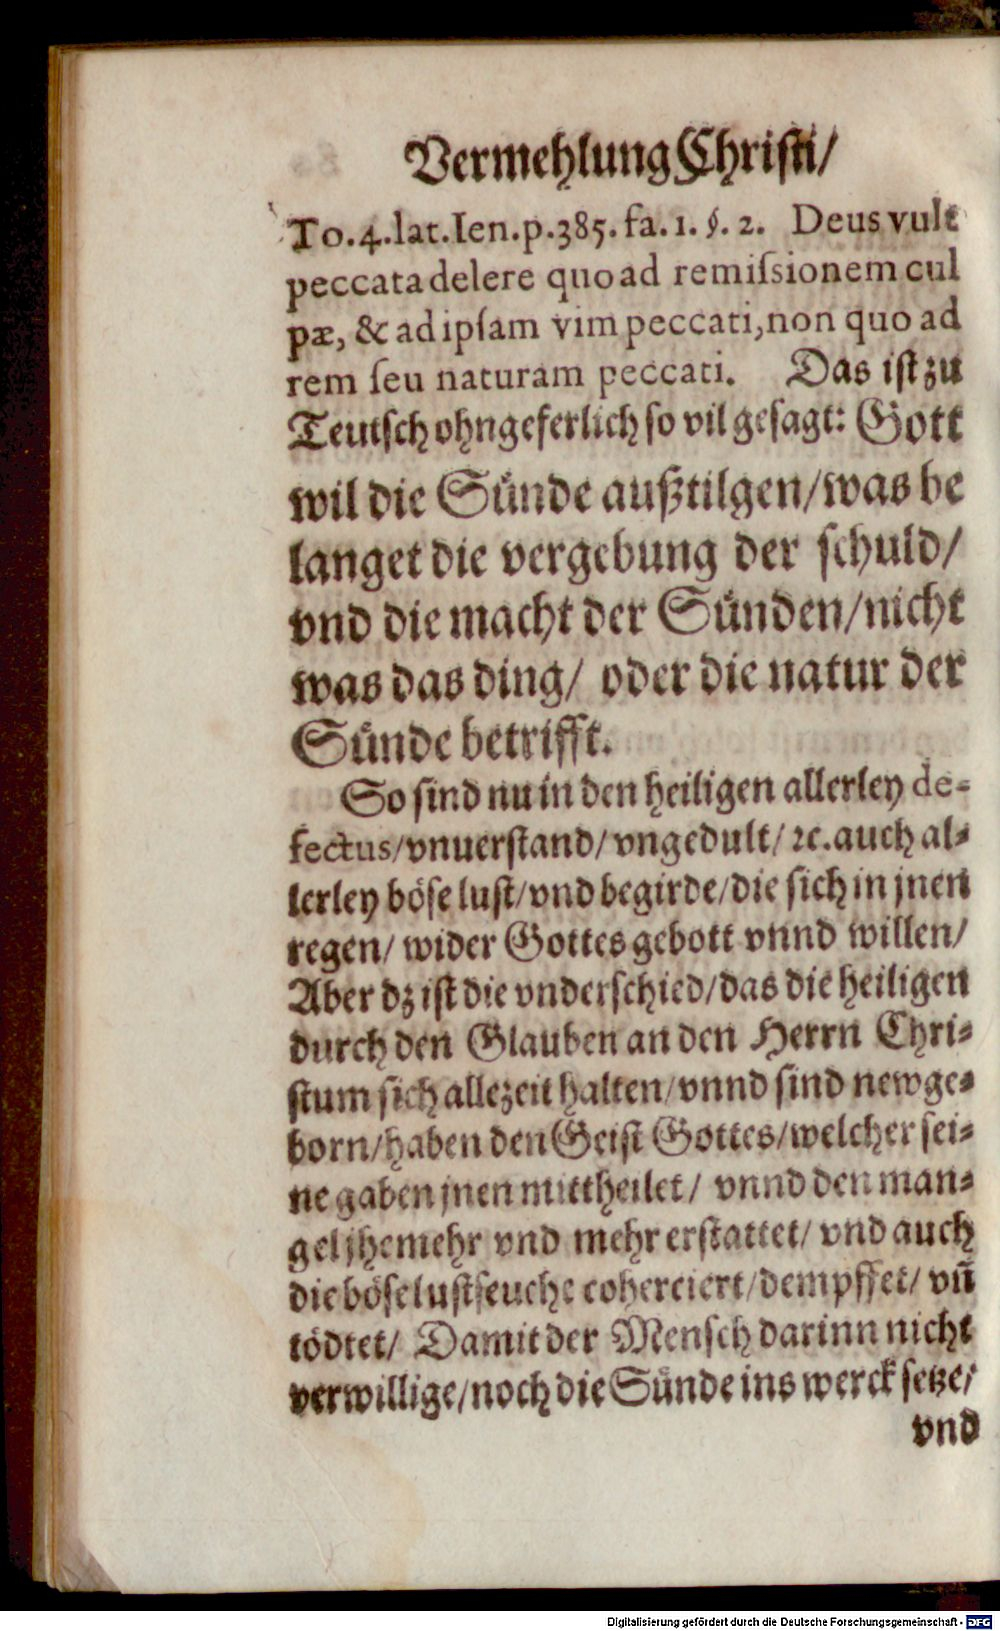 Vermehlung Christi/
To.4.lat.Ien.p.385.fa.1.§.2. Deus vult
peccata delere quo ad remiſsionem cul
pæ, & ad ipſam vim peccati, non quo ad
rem ſeu naturam peccati. Das iſt zu
Teutſch ohngeferlich ſo vil geſagt: Gott
wil die Sünde außtilgen/was be
langet die vergebung der ſchuld/
vnd die macht der Sünden/nicht
was das ding/ oder die natur der
Sünde betrifft.
So ſind nu in den heiligen allerley de-
fectus/vnuerſtand/vngedult/ꝛc.auch al-
lerley böſe luſt/vnd begirde/die ſich in jnen
regen/ wider Gottes gebott vnnd willen/
Aber dz iſt die vnderſchied/das die heiligen
durch den Glauben an den Herrn Chri-
ſtum ſich allezeit halten/vnnd ſind newge-
born/haben den Geiſt Gottes/welcher ſei-
ne gaben jnen mittheilet/ vnnd den man-
gel jhe mehr vnd mehr erſtattet/ vnd auch
die böſe luſtſeuche coherciert/dempffet/ vñ
tödtet/ Damit der Menſch darinn nicht
verwillige/noch die Sünde ins werck ſetze/
vnd
Digitalisierung gefördert durch die Deutsche Forschungsgemeinschaft - DFG